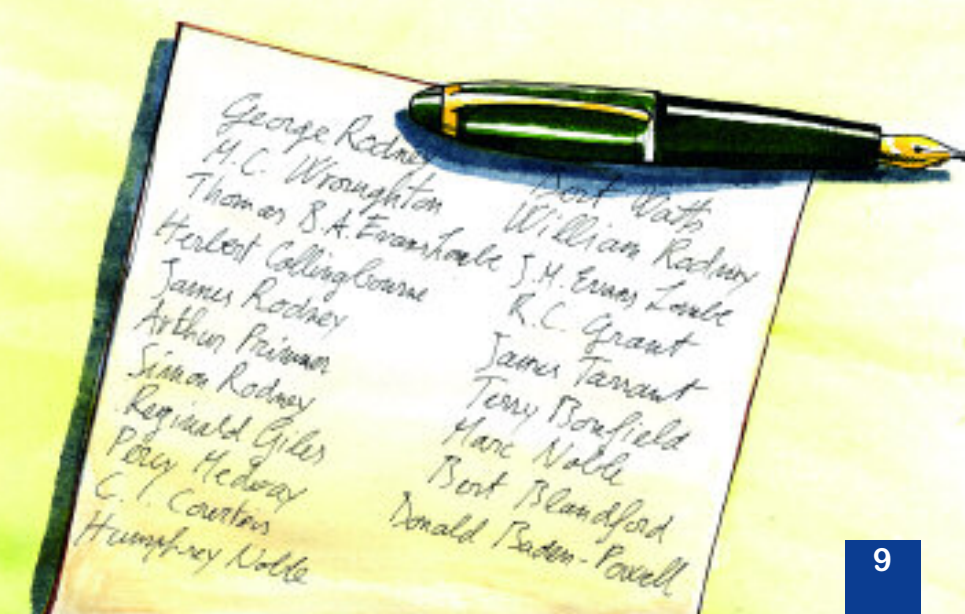 George Rodney
M.C. Wroughton
Thomas B.A. Evans Lombe
Herbert Collingbourne
James Rodney
Arthur Primmer
Simon Rodney
Reginald Giles
Percy Medway
C. Courtois
Humphrey Noble
Bert Watts
William Rodney
J.M. Evans Lombe
R.C. Grant
James Tarrant
Terry Bonfield
Marc Noble
Bert Blandford
Donald Baden-Powell
9